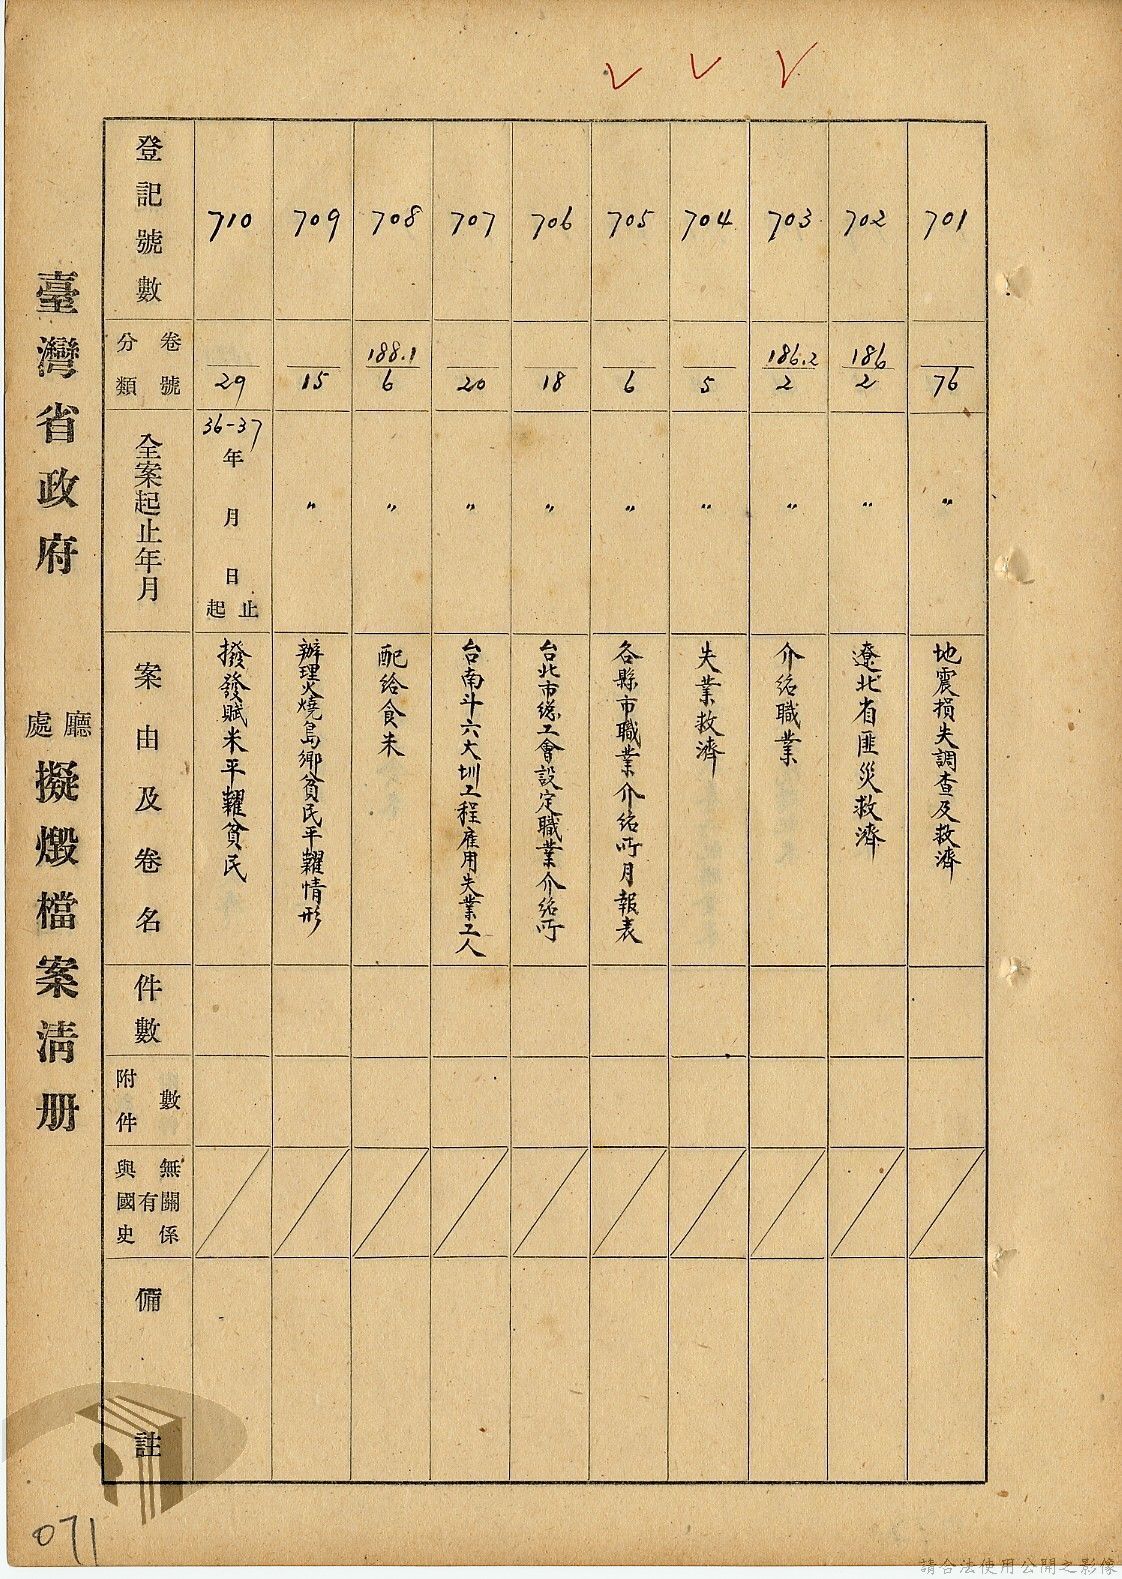 臺灣省政府 廳處 擬燬檔案清册
登記號數
分類 卷號
全案起止年月
案由及卷名
件數
附件 數
與國史 有 無關係
備註
710
29
36-37 年 月 日 起 止
撥發賦米平糶貧民
709
15
〃
辦理火燒島鄉貧民平糶情形
708
188.1
6
〃
配給食米
707
20
〃
台南斗六大圳工程雇用失業工人
706
18
〃
台北市總工會設定職業介紹所
705
6
〃
各縣市職業介紹所月報表
704
5
〃
失業救濟
703
186.2
2
〃
介紹職業
702
186
2
〃
遼北省匪災救濟
701
76
〃
地震損失調查及救濟
071
請合法使用公開之影像